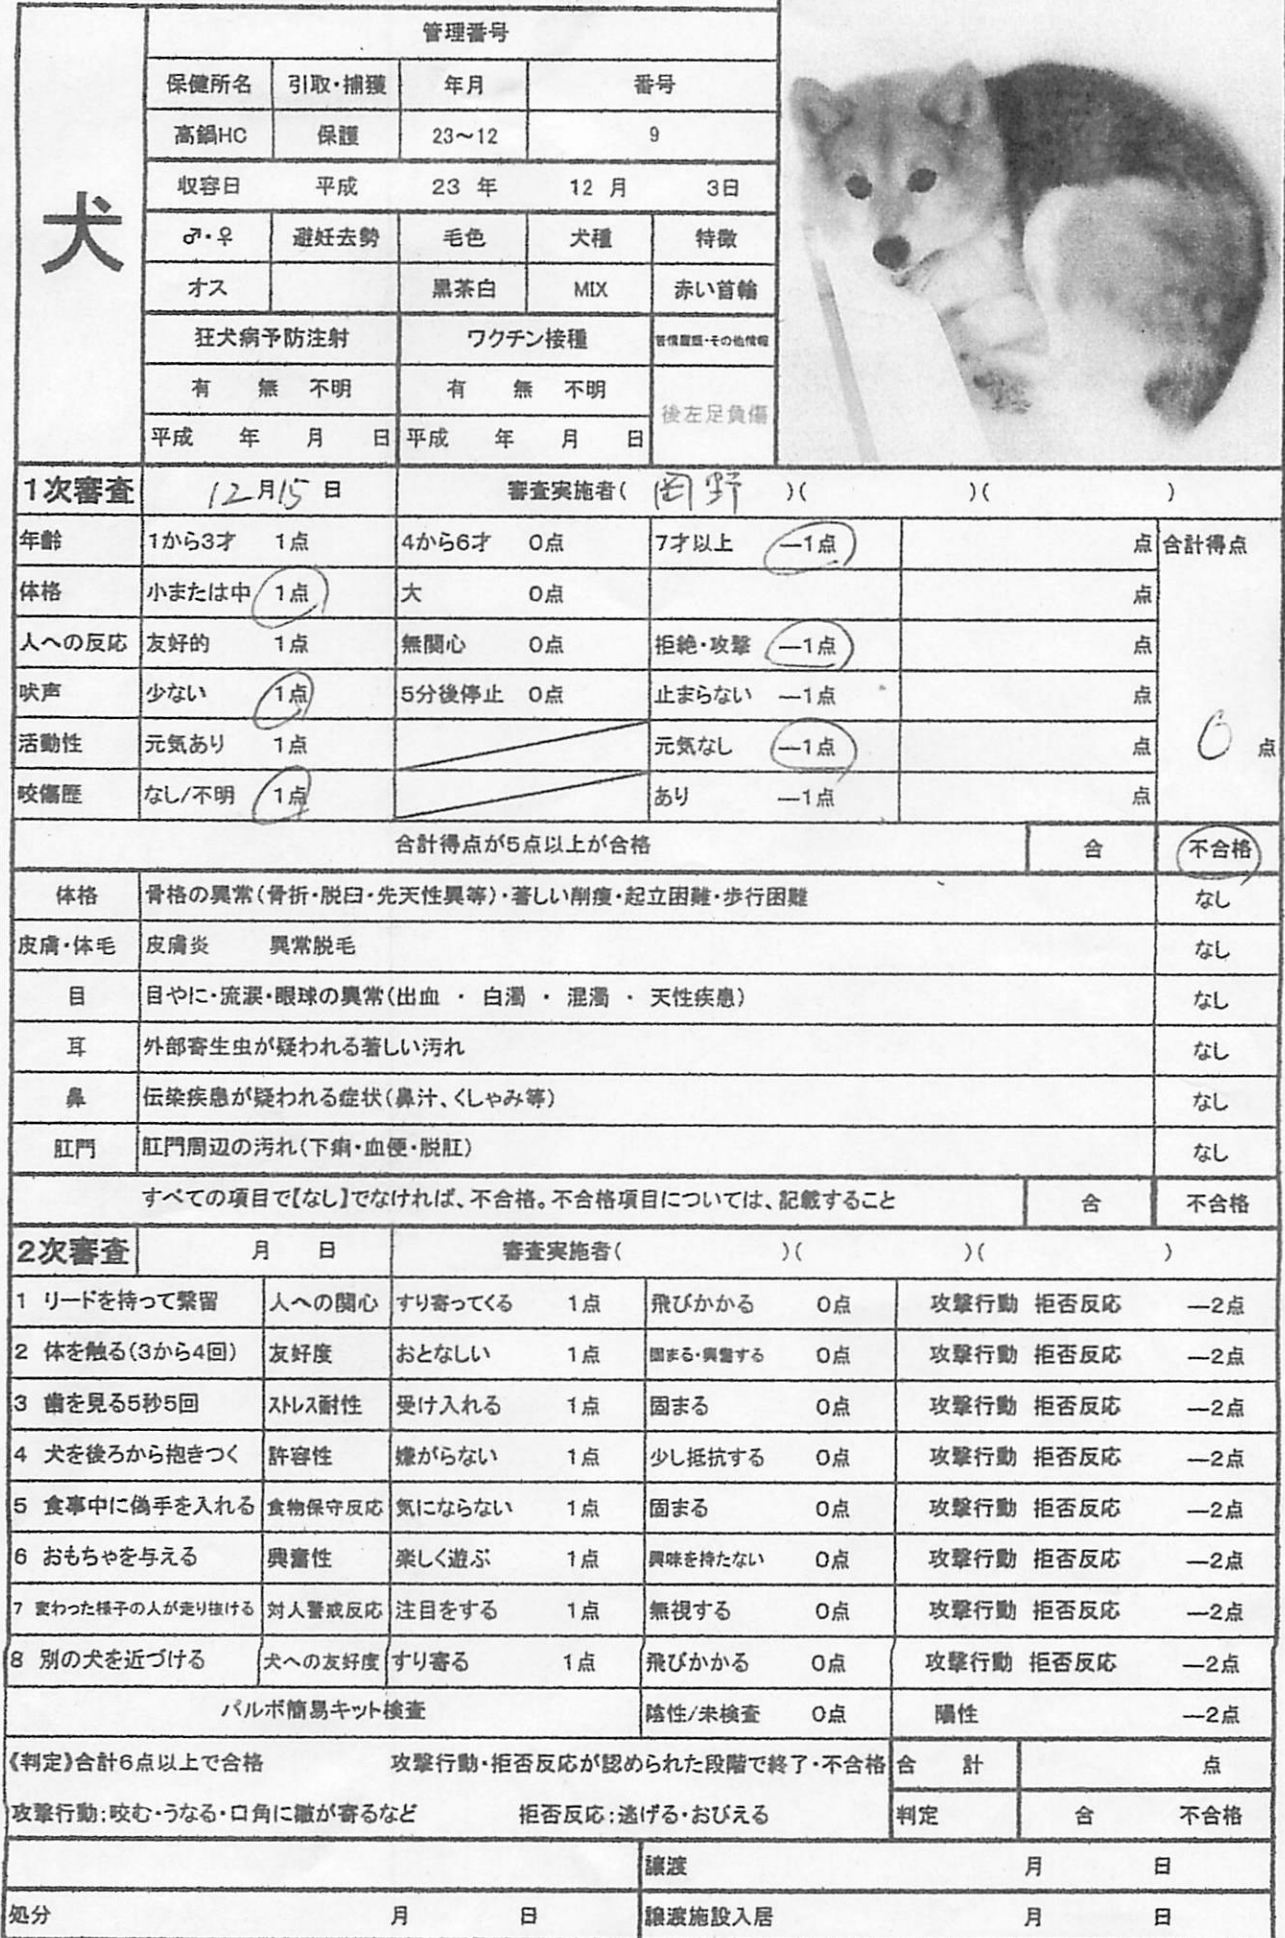 犬
管理番号
保健所名 引取・捕獲 年月 番号
高鍋HC 保護 23～12 9
収容日 平成 23 年 12 月 3日
♂・♀ 避妊去勢 毛色 犬種 特徴
オス 黒茶白 MIX 赤い首輪
狂犬病予防注射 ワクチン接種 苦情履歴・その他情報
有 無 不明 有 無 不明
後左足負傷
平成 年 月 日 平成 年 月 日
1次審査 12月15日 審査実施者( 岡野 )( )( )
年齢 1から3才 1点 4から6才 0点 7才以上 ―1点 点 合計得点
体格 小または中 1点 大 0点 点
人への反応 友好的 1点 無関心 0点 拒絶・攻撃 ―1点 点
吠声 少ない 1点 5分後停止 0点 止まらない ―1点 点
活動性 元気あり 1点 元気なし ―1点 点 0 点
咬傷歴 なし/不明 1点 あり ―1点 点
合計得点が5点以上が合格 合 不合格
体格 骨格の異常(骨折・脱臼・先天性異等)・著しい削痩・起立困難・歩行困難 なし
皮膚・体毛 皮膚炎 異常脱毛 なし
目 目やに・流涙・眼球の異常(出血 ・ 白濁 ・ 混濁 ・ 天性疾患) なし
耳 外部寄生虫が疑われる著しい汚れ なし
鼻 伝染疾患が疑われる症状(鼻汁、くしゃみ等) なし
肛門 肛門周辺の汚れ(下痢・血便・脱肛) なし
すべての項目で【なし】でなければ、不合格。不合格項目については、記載すること 合 不合格
2次審査 月 日 審査実施者( )( )( )
1 リードを持って繋留 人への関心 すり寄ってくる 1点 飛びかかる 0点 攻撃行動 拒否反応 ―2点
2 体を触る(3から4回) 友好度 おとなしい 1点 固まる・興奮する 0点 攻撃行動 拒否反応 ―2点
3 歯を見る5秒5回 ストレス耐性 受け入れる 1点 固まる 0点 攻撃行動 拒否反応 ―2点
4 犬を後ろから抱きつく 許容性 嫌がらない 1点 少し抵抗する 0点 攻撃行動 拒否反応 ―2点
5 食事中に偽手を入れる 食物保守反応 気にならない 1点 固まる 0点 攻撃行動 拒否反応 ―2点
6 おもちゃを与える 興奮性 楽しく遊ぶ 1点 興味を持たない 0点 攻撃行動 拒否反応 ―2点
7 変わった様子の人が走り抜ける 対人警戒反応 注目をする 1点 無視する 0点 攻撃行動 拒否反応 ―2点
8 別の犬を近づける 犬への友好度 すり寄る 1点 飛びかかる 0点 攻撃行動 拒否反応 ―2点
パルボ簡易キット検査 陰性/未検査 0点 陽性 ―2点
《判定》合計6点以上で合格 攻撃行動・拒否反応が認められた段階で終了・不合格 合 計 点
攻撃行動;咬む・うなる・口角に皺が寄るなど 拒否反応;逃げる・おびえる 判定 合 不合格
譲渡 月 日
処分 月 日 譲渡施設入居 月 日